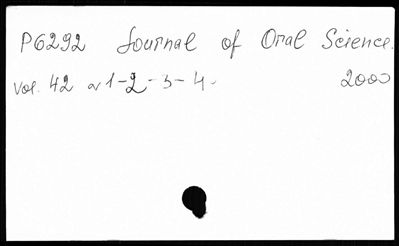 P6292 Journal of Oral Science.
Vol. 42 N 1-2-3-4. 2000